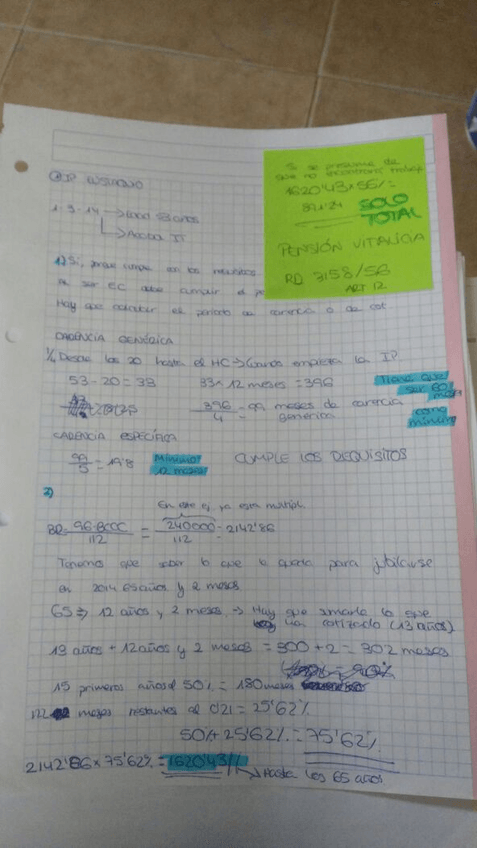 Si se presume de
que no encontrará trabajo
1620'43 x 55% =
891'24 SOLO
TOTAL
PENSIÓN VITALICIA
RD 3158/56
ART 12
1-3-14 → 53 años
→ Acaba IT
1) Sí, porque cumple con los requisitos.
Al ser EC debe cumplir el
Hay que calcular el periodo de carencia o de cot
CARENCIA GENÉRICA
1/4 Desde los 20 hasta el HC → Cuando empieza la IP
53 - 20 = 33 33 x 12 meses = 396
396/4 = 99 meses de carencia genérica
Tiene que ser 60 meses como mínimo
CARENCIA ESPECÍFICA
99/5 = 19'8 Mínimo 12 meses CUMPLE LOS REQUISITOS
2)
En este ej. ya está multipl.
BR = 96·BCCC/112 = 240000/112 = 2142'86
Tenemos que saber lo que le queda para jubilarse
en 2014 65 años y 2 meses.
65 ⇒ 12 años y 2 meses → Hay que sumarla lo que
ha cotizado (13 años)
13 años + 12 años y 2 meses = 300 + 2 = 302 meses
15 primeros años el 50% = 180 meses
122 meses restantes al 0'21 = 25'62%
50% + 25'62% = 75'62%
2142'86 x 75'62% = 1620'43 // → Hasta los 65 años